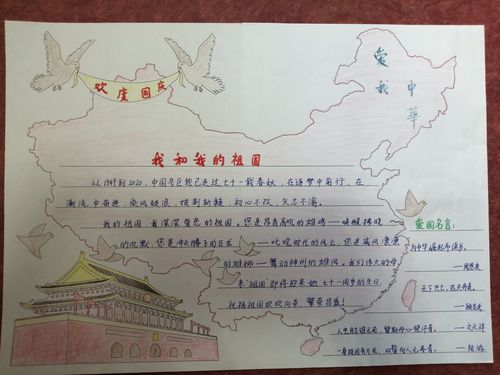 欢度国庆
爱我
中华
我和我的祖国
从1949到2020,中国号巨轮已走过七十一载春秋,在逐梦中前行,在
激流中奋进,乘风破浪,披荆斩棘,初心不改,矢志不渝。
我的祖国,我深深爱恋的祖国。您是昂首高吭的雄鸡——唤醒拂晓
的沉默,您是冲天腾飞的巨龙——叱咤时代的风云,您是威风凛凛
的雄狮——舞动神州的雄风。我们伟大的母
亲"祖国"即将迎来她七十一周岁的生日
祝福祖国欣欣向荣 繁荣昌盛!
爱国名言:
为中华崛起而读书。
——周恩来
天下兴亡,匹夫有责。
——顾炎武
人生自古谁无死,留取丹心照汗青。
——文天祥
一身报国有万死,双鬓向人无再青。
——陆游